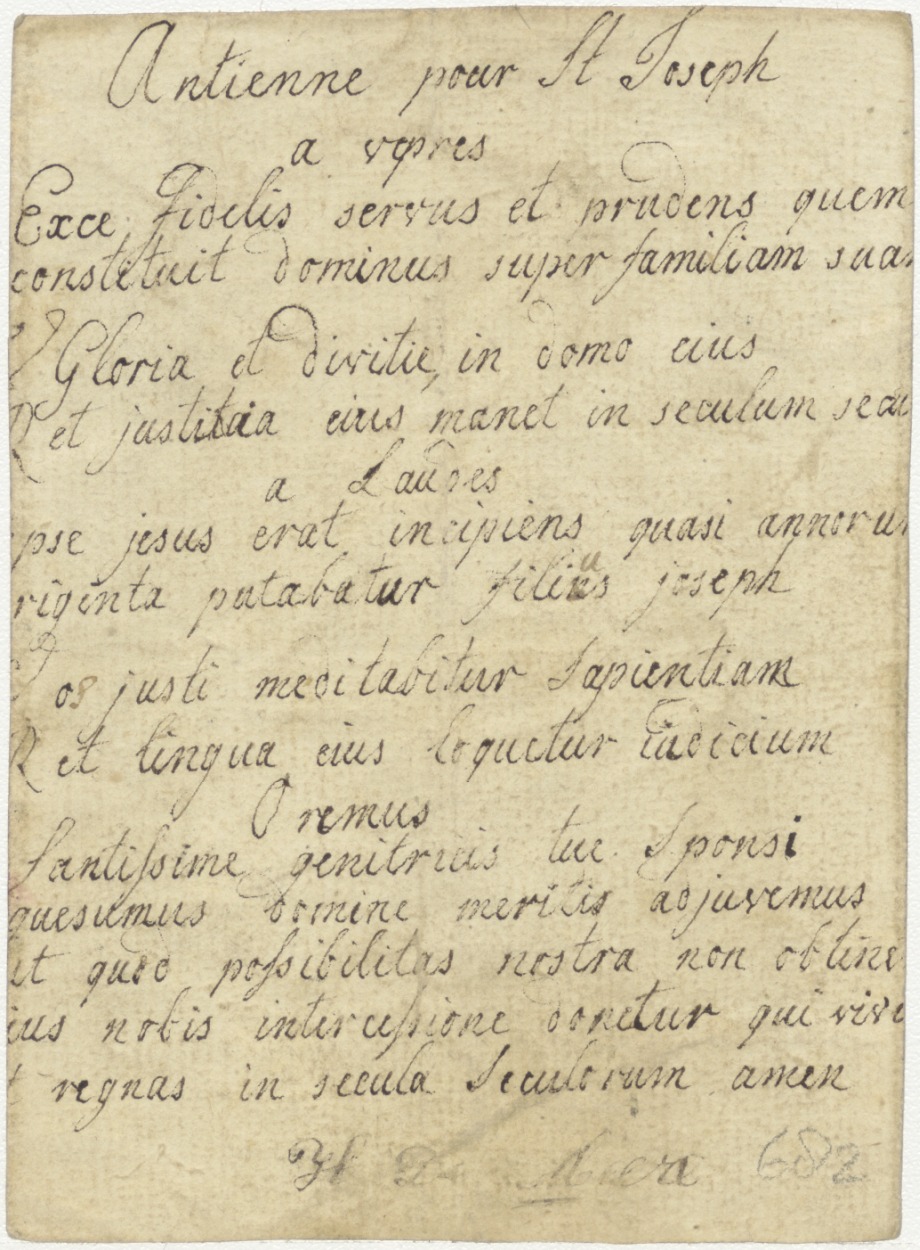 Antienne pour St Joseph
a vepres
Exce fidelis servus et prudens quem
constetuit dominus super familiam suam
V Gloria et divitie, in domo eius
R et justitaia eius manet in seculum secu
a Laudes
pse jesus erat incipiens quasi annorum
riginta putabatur filius joseph
V os justi meditabitur Sapientiam
R et lingua eius loquetur iudicium
Oremus
Santissime genitricis tue Sponsi
quesumus domine meritis adjuvemus
ut quod possibilitas nostra non obtine
ius nobis intercessione donetur qui vive
t regnas in secula Seculorum amen
682